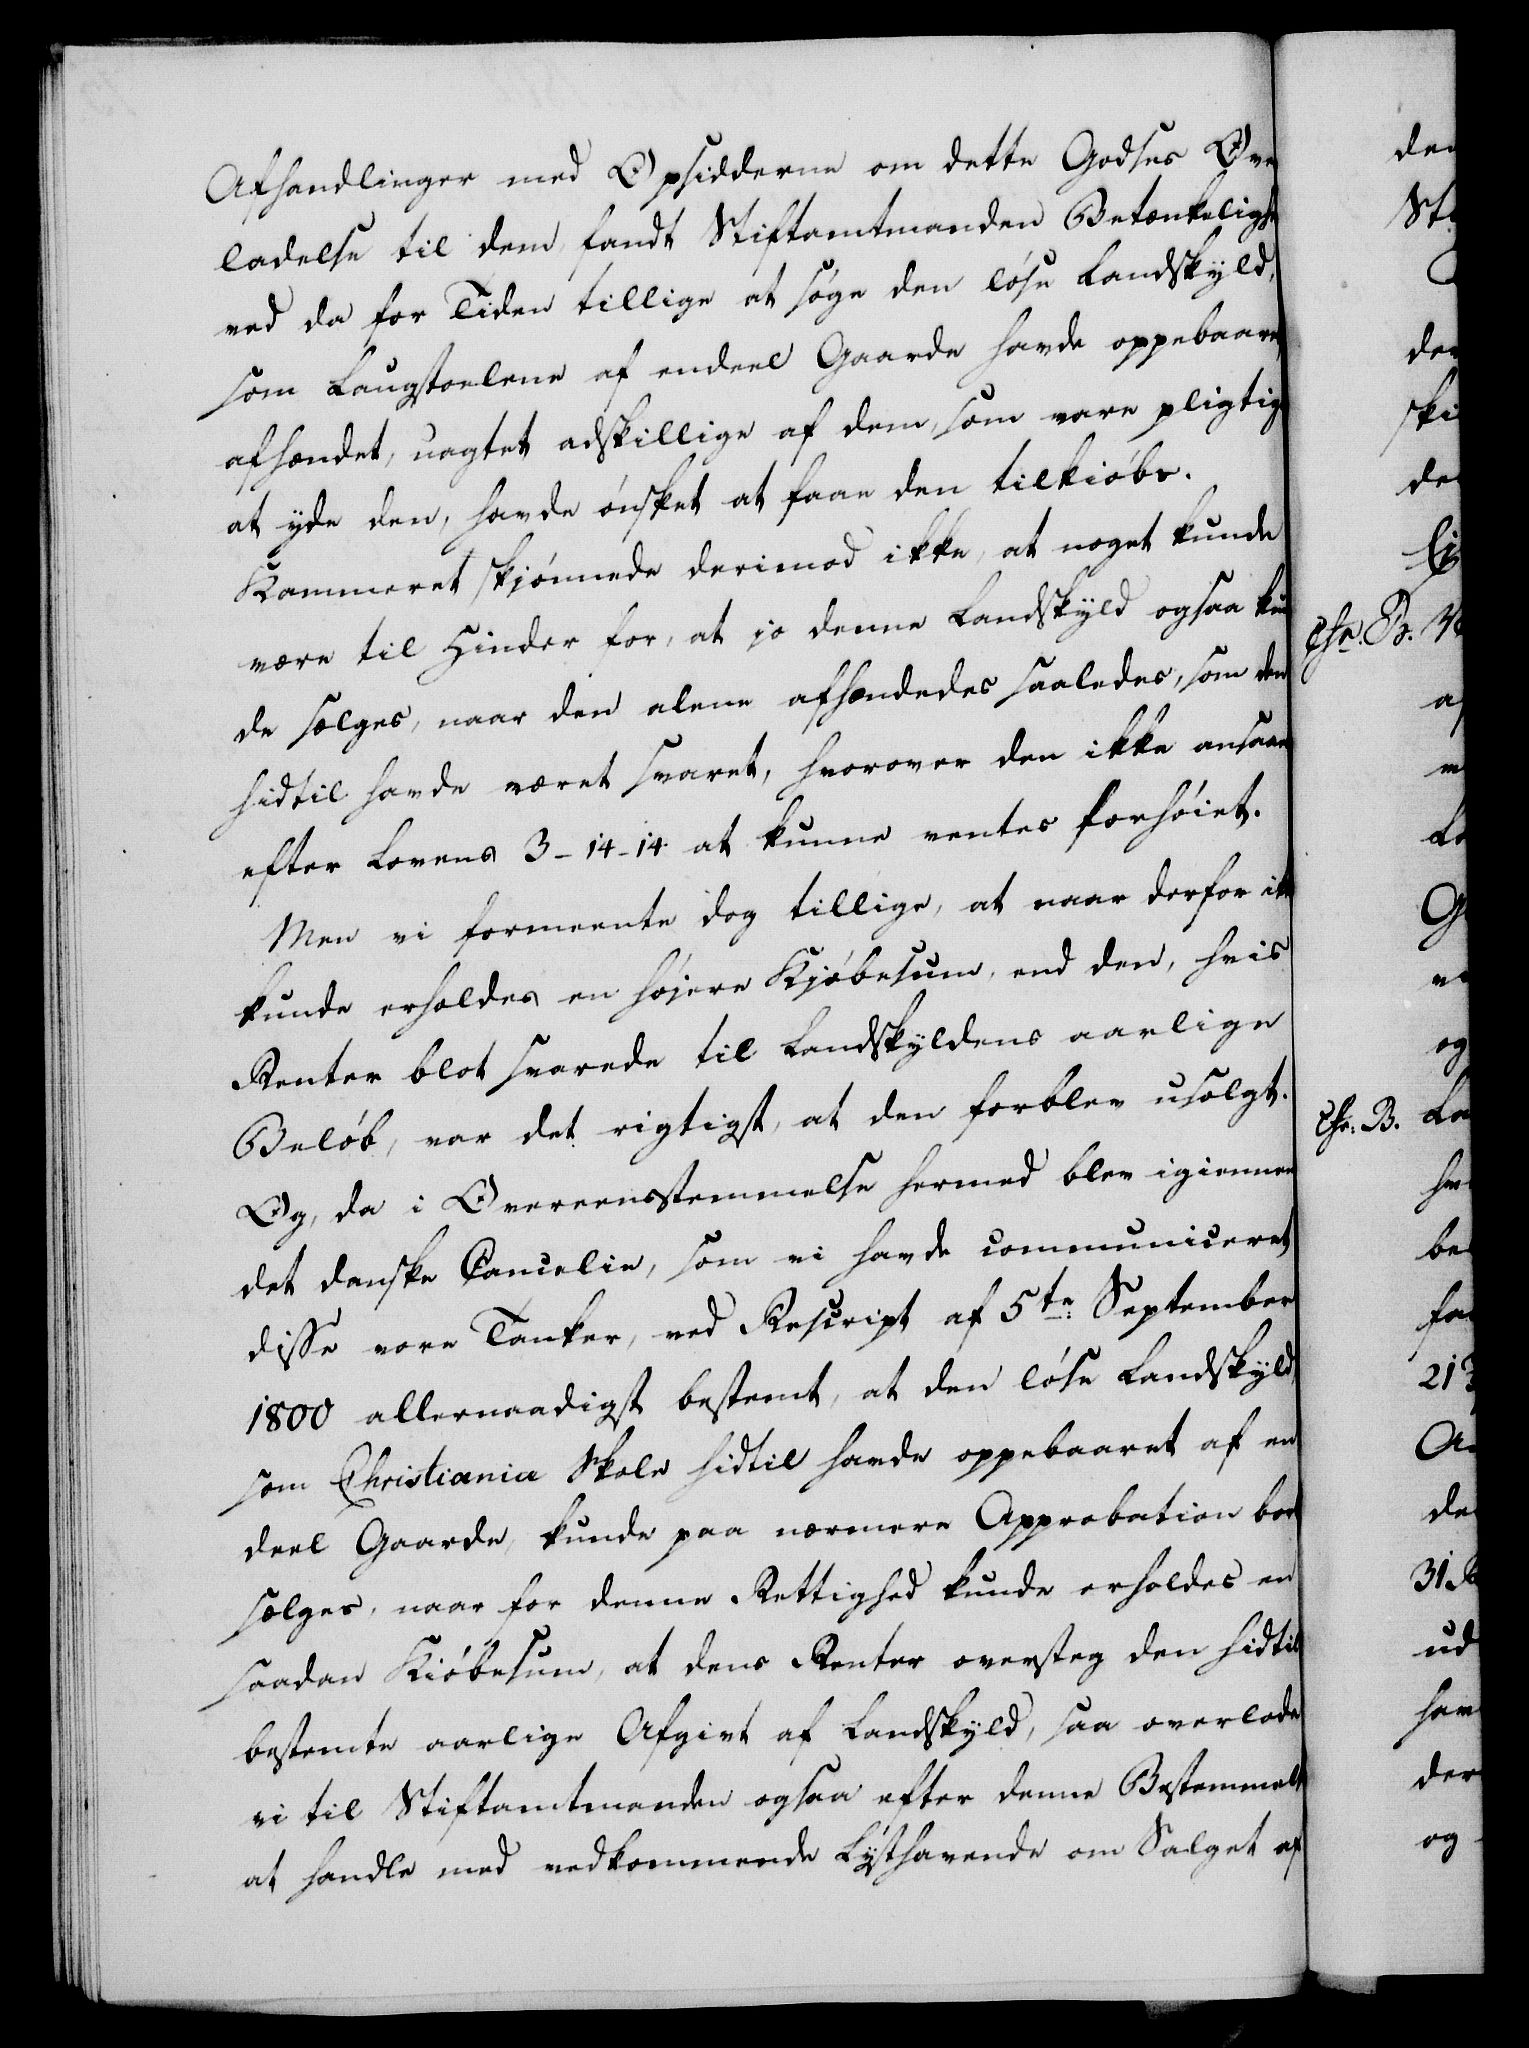 Afhandlinger med Opsidderne om dette Godses Ove
ladelse til dem, fandt Stiftamtmanden Betænkelighe
ved da for Tiden tillige at søge den løse Landskyld,
som Laugstolene af endeel Gaarde havde oppebaaret,
afhændet, uagtet adskillige af dem, som vare pligtige
at yde den, havde ønsket at faae den tilkiøbs.
Kammeret skjønnede derimod ikke, at noget kunde
være til Hinder for, at jo denne Landskyld ogsaa kun
de sælges, naar den alene afhændedes saaledes, som den
hidtil havde været svaret, hvorover den ikke ansaaes
efter Lovens 3-14-14 at kunne ventes forhøiet.
Men vi formeente dog tillige, at naar derfor ikk
kunde erholdes en højere Kjøbesum, end den, hvis
Renter blot svarede til Landskyldens aarlige
Beløb, var det rigtigst, at den forblev usolgt.
Og, da i Overeensstemmelse hermed blev igiennem
det danske Cancelie, som vi havde communiceret
disse vore Tanker, ved Rescript af 5te September
1800 allernaadigst bestemt, at den løse Landskyld,
som Christiania Skole hidtil havde oppebaaret af en
deel Gaarde, kunde paa nærmere Approbation bort
sælges, naar for denne Rettighed kunde erholdes en
saadan Kiøbesum, at dens Renter oversteg den hidtil
bestemte aarlige Afgivt af Landskyld, saa overlode
vi til Stiftamtmanden ogsaa efter denne Bestemmelse
at handle med vedkommende Lysthavende om Salget af